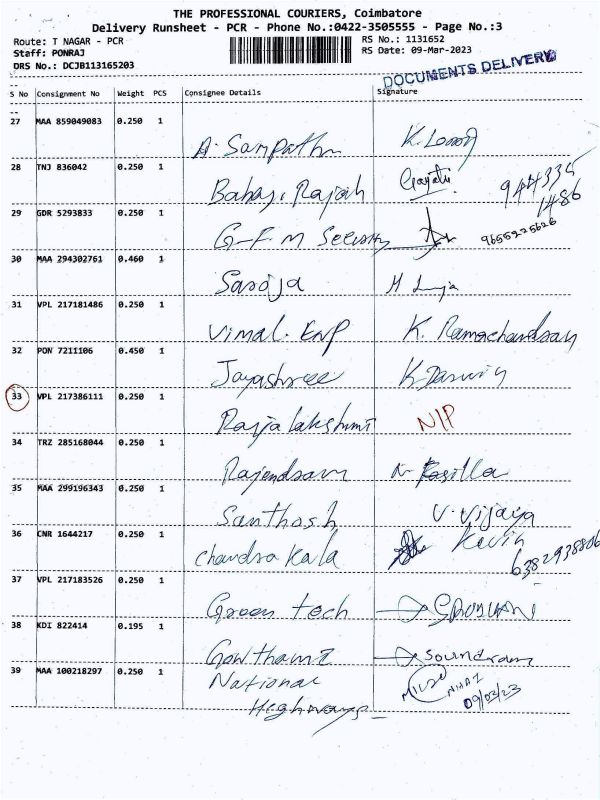 THE PROFESSIONAL COURIERS, Coimbatore
Delivery Runsheet - PCR - Phone No.:0422-3505555 - Page No.:3
Route: T NAGAR - PCR
Staff: PONRAJ
DRS No.: DCJB113165203
RS No.: 1131652
RS Date: 09-Mar-2023
DOCUMENTS DELIVERY
S No Consignment No Weight PCS Consignee Details Signature
27 MAA 859049083 0.250 1
A. Sampath K.
28 TNJ 836042 0.250 1
Rajah Gayatri 944335
1486
29 GDR 5293833 0.250 1
G-F.M Security 9655225626
30 MAA 294302761 0.460 1
Saroja M
31 VPL 217181486 0.250 1
Vimal. ENP K. Ramachandran
32 PON 7211106 0.450 1
Jayashree K
33 VPL 217386111 0.250 1
Rajalakshmi N/P
34 TRZ 285168044 0.250 1
Rajendran N
35 MAA 299196343 0.250 1
Santhosh V. Vijaya
36 CNR 1644217 0.250 1
Chandra Kala Kevin
6382938806
37 VPL 217183526 0.250 1
Green tech
38 KDI 822414 0.195 1
Gowthami Soundram
39 MAA 100218297 0.250 1
National
Heghways NHAI
09/03/23